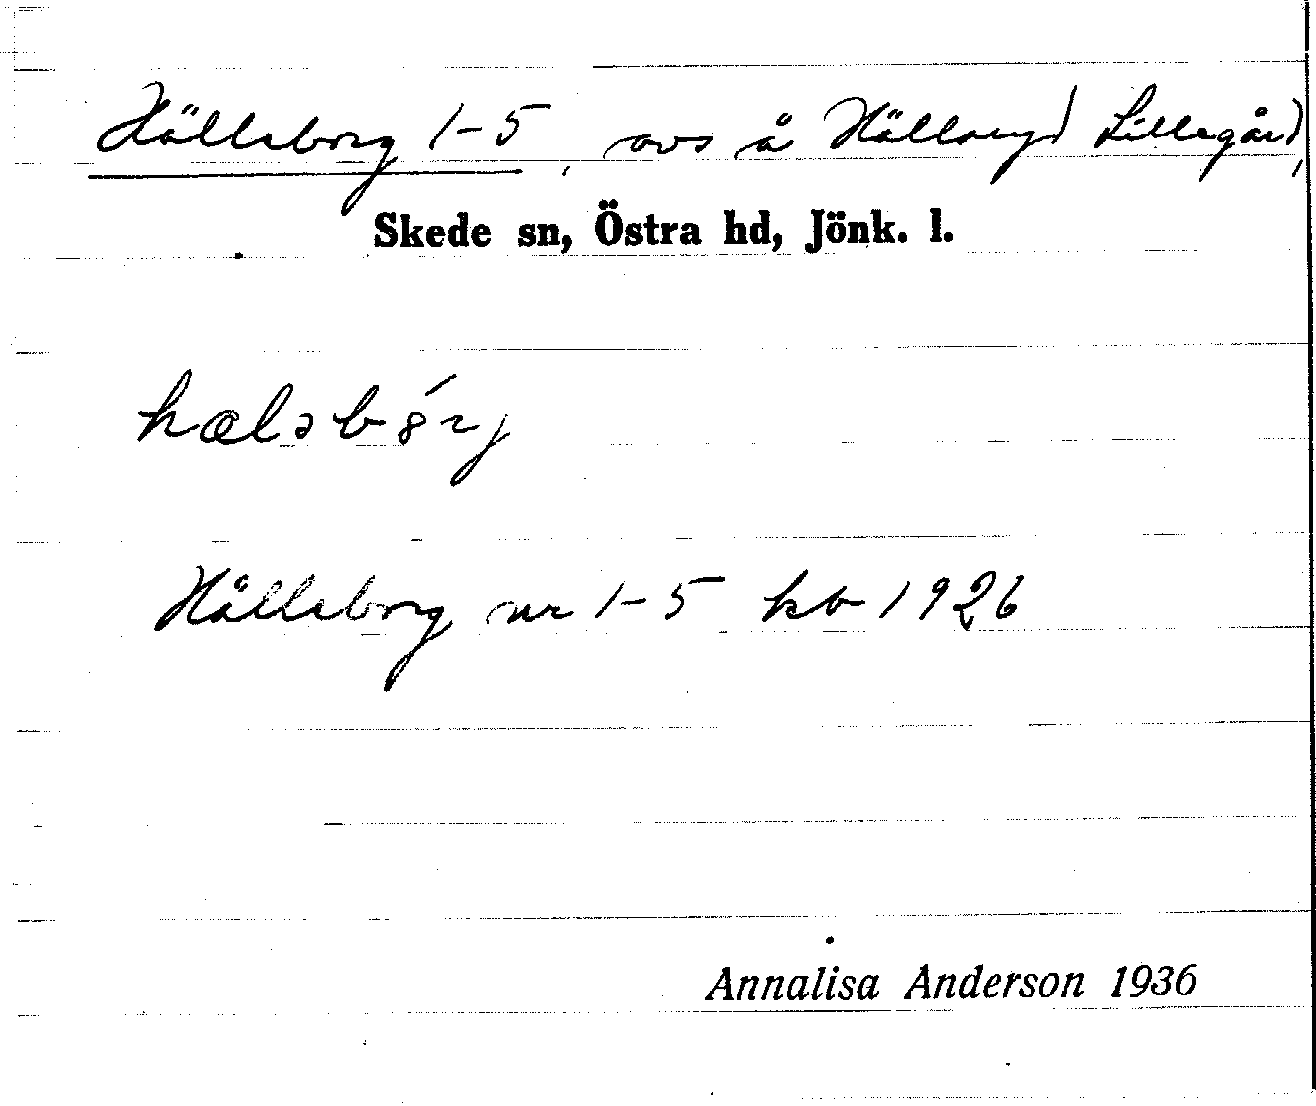 Hälleborg 1-5, avs å Hällaryd Lillegård,
Skede sn, Östra hd, Jönk. l.
hæləbórj
Hälleborg nr 1-5 kb 1926
Annalisa Anderson 1936